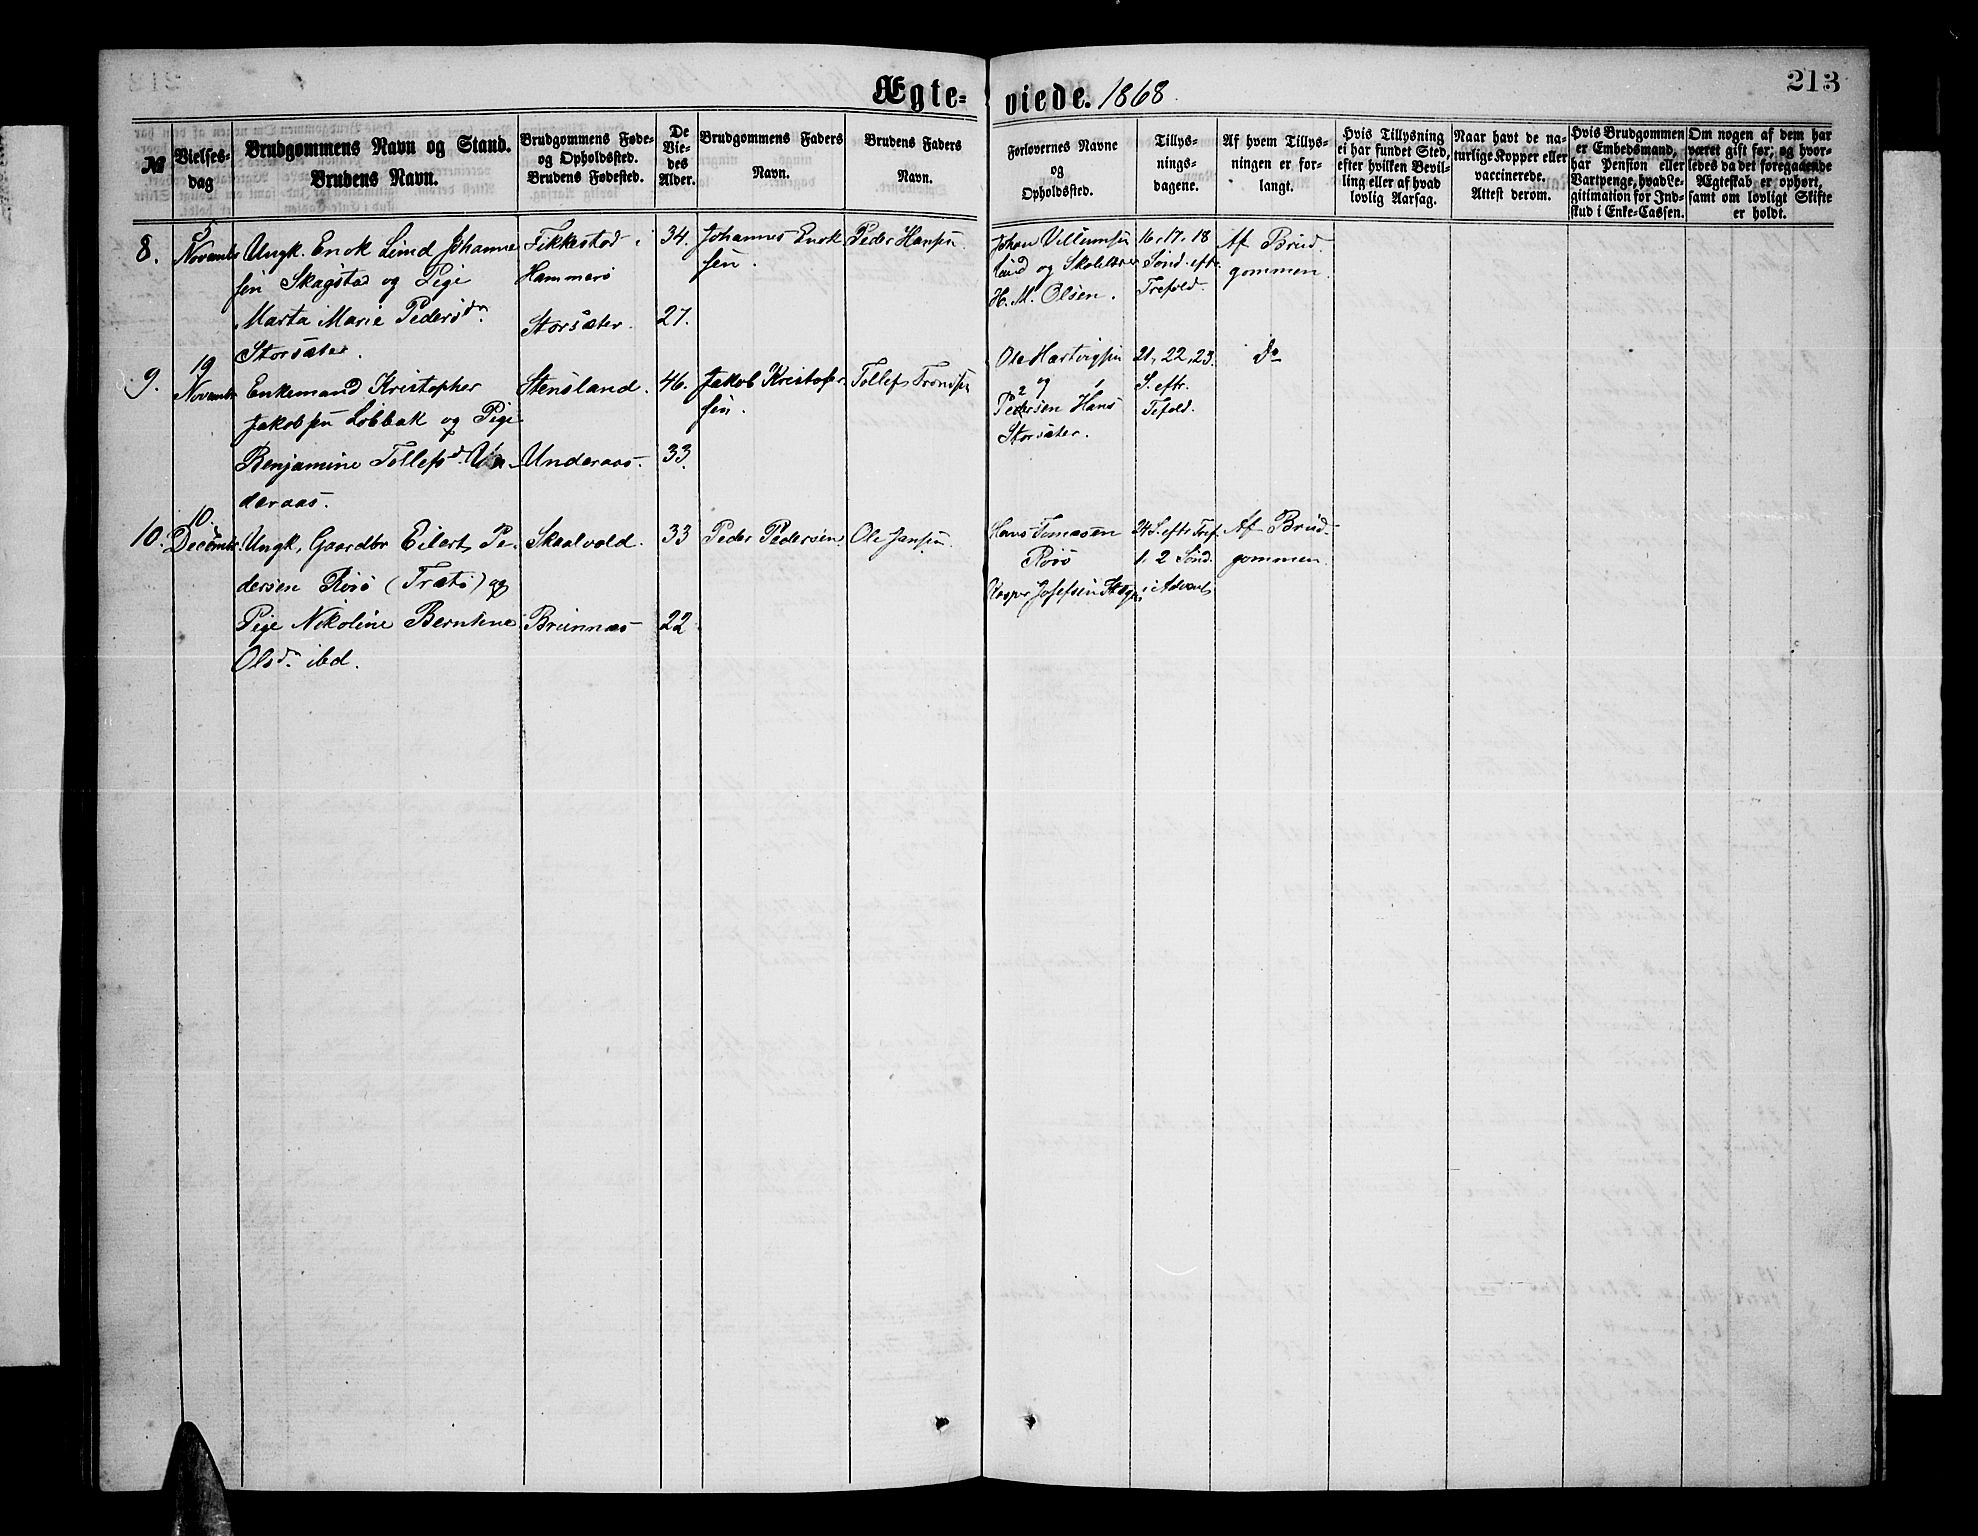 Ægte-
viede. 1868.
213
№
Vielses-
dag
Brudgommens Navn og Stand.
Brudens Navn.
Brudgommens Føde-
og Opholdssted.
Brudens Fødested.
De
Vie-
des
Alder.
Brudgommens Faders
Navn.
Brudens Faders
Navn.
Forlovernes Navne
og
Opholdssted.
Tillys-
nings-
dagene.
Af hvem Tillys-
ningen er for-
langt.
Hvis Tillysning
ei har fundet Sted,
efter hvilken Bevil-
ling eller af hvad
lovlig Aarsag.
Naar havt de na-
turlige Kopper eller
vaccinerede.
Attest derom.
Hvis Brudgommen
er Embedsmand,
har Pension eller
Vartpenge, hvad Le-
gitimation for Ind-
skud i Enke-Cassen.
Om nogen af dem har
været gift før; og hvor-
ledes da det foregaaende
Ægteskab er ophørt,
samt om lovligt Skifte
er holdt.
8.
5
Novembr
Ungk. Enok Lind Johanne
sen Skagstad og Pige
Marta Marie Pedersdr
Storsæter.
Fikkestad i
Hammerø
Storsæter.
34.
27.
Johannes Enok
sen.
Peder Hansen
Johan Villumsen
og Skolelærer
H. M. Olsen.
16. 17. 18
Sønd. eftr.
Trefold.
Af Brud-
gommen.
9.
19
Novembr
Enkemand Kristopher
Jakobsen Løbbak og Pige
Benjamine Tollefsd. Un-
deraas.
Stensland.
Underaas.
46.
33.
Jakob Kristofer
sen.
Tollef Tronsen
Ole Hartvigsen
og
Pedersen Hans
Storsæter.
21, 22, 23.
S. eftr.
Tefold.
Do
10.
10.
Decembr.
Ungk. Gaardbr Eilert Pe-
dersen Rørø (Trætø) og
Pige Nikoline Berntine
Olsdr. ibd.
Skaalvold.
Brunnæs
33
22
Peder Pedersen
Ole Jansen
Hans Tomasen
Rørø
Kasper Josefsen
24 S. eftr Tref.
1. 2 Sønd.
i Advent
Af Brud-
gommen.